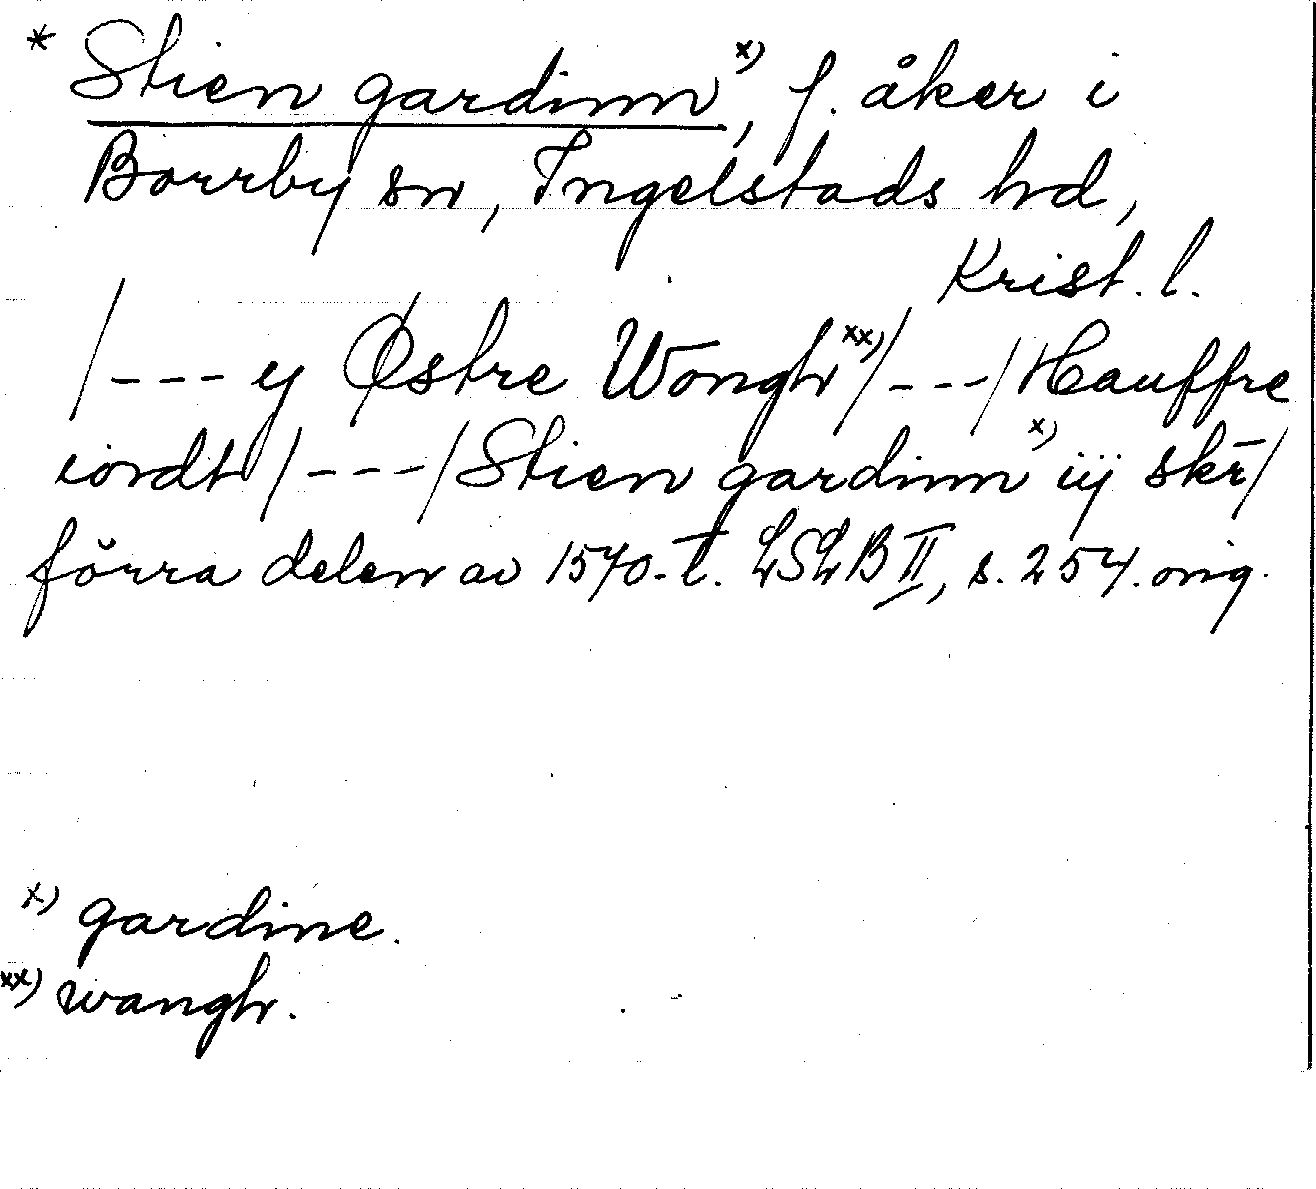 * Stien gardinn x), f. åker i
Borrby sn, Ingelstads hd,
Krist. l.
/---y Østre Wongh xx)/---/Hauffre
iordt/---/Stien gardinn x) iij skr̄/
förra delen av 1570-t. LSLB II, s. 254. orig.
x) gardine.
xx) wangh.